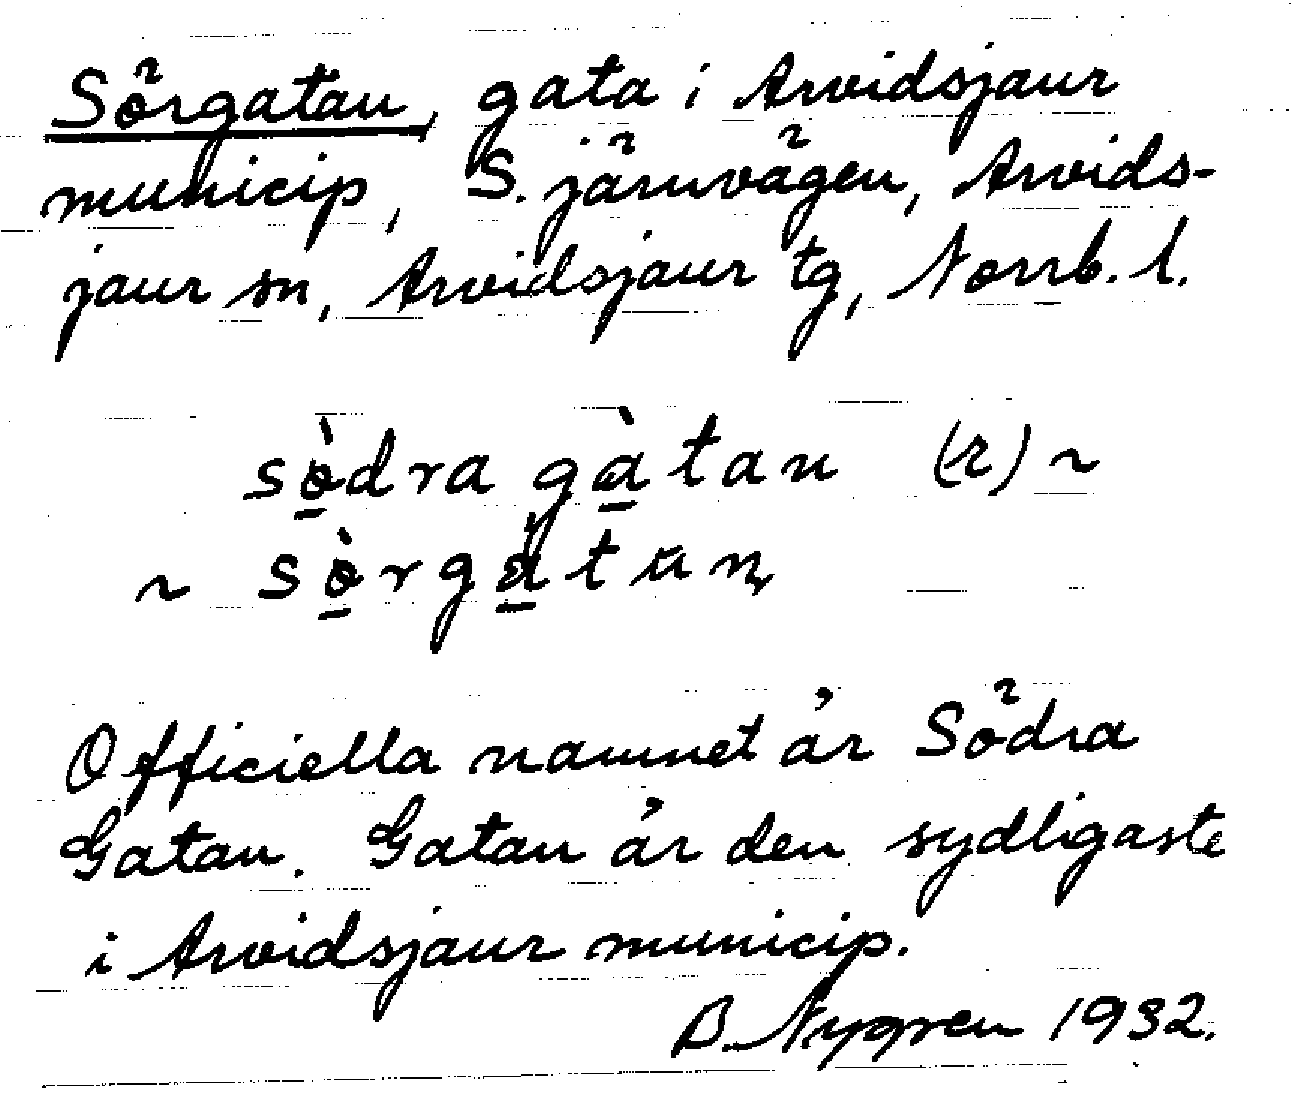 Sörgatan, gata i Arvidsjaur
municip, S. järnvägen, Arvids-
jaur sn, Arvidsjaur tg, Norrb. l.
sø̠̀dra gà̠tan (r) ~
~ sø̠̀rgà̠tun̥
Officiella namnet är Södra
Gatan. Gatan är den sydligaste
i Arvidsjaur municip.
B. Nygren 1932.